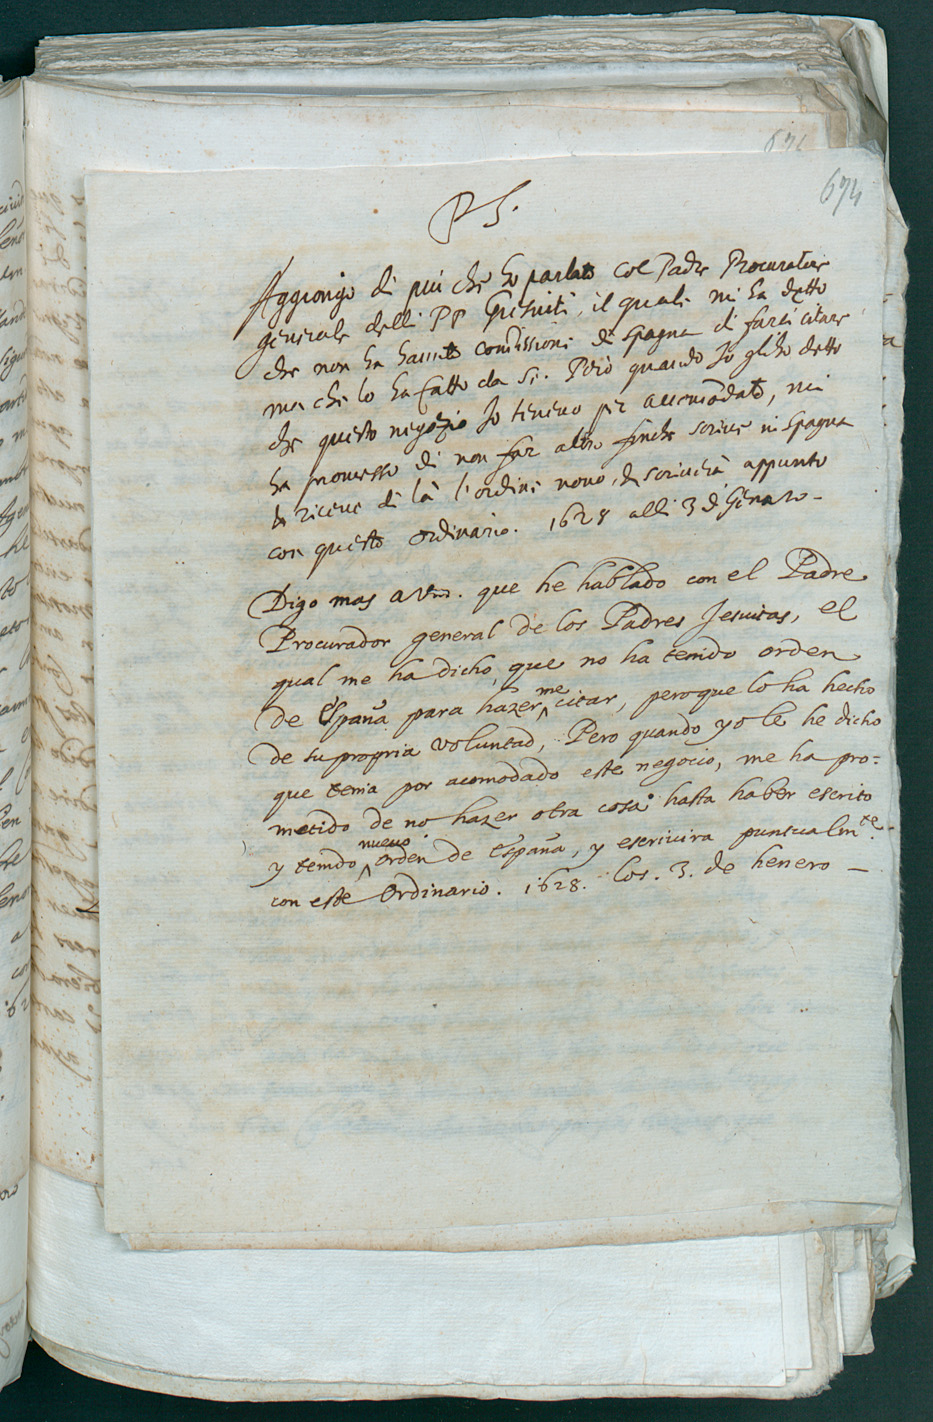 674
PS.
Aggiongo di più che ho parlato col Padre Procuratore
generale delli PP Giesuiti, il quale mi ha detto
che non ha havuto comissione di Spagna di farci citare
ma che lo ha fatto da se. Però quando Io gli ho detto
che questo negozio Io tenevo per accomodato, mi
ha promesso di non far altro finche scrive in Spagna
riceve di là l'ordine novo, scriverà appunto
con questo ordinario. 1628 alli 3 di Genaro -
Digo mas a Vm. que he hablado con el Padre
Procurador general de los Padres Jesuitas, el
qual me ha dicho, que no ha tenido orden
de España para hazer me citar, pero que lo ha hecho
de su propria voluntad, Pero quando yo le he dicho
que tenia por acomodado este negocio, me ha pro=
metido de no hazer otra cosa hasta haber escrito
y tenido nuevo orden de España, y escrivira puntualmte.
con este Ordinario. 1628. los. 3. de henero -